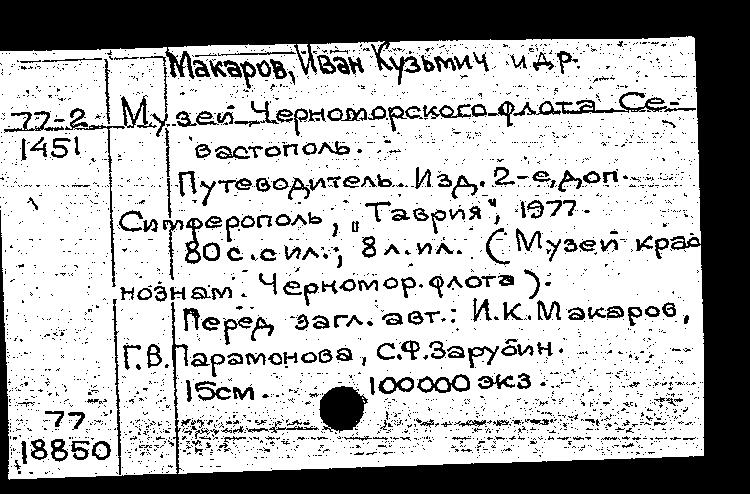 Макаров, Иван Кузьмич и др.
77-2 Музей Черноморского флота Се-
1451 вастополь.
Путеводитель. Изд. 2-е, доп.
Симферополь, „Таврия", 1977.
80 с. с ил.; 8 л. ил. (Музей крас
нознам. Черномор. флота).
Перед загл. авт.: И.К. Макаров,
Г.В. Парамонова, С.Ф. Зарубин.
15см. 100000 экз.
77
18850